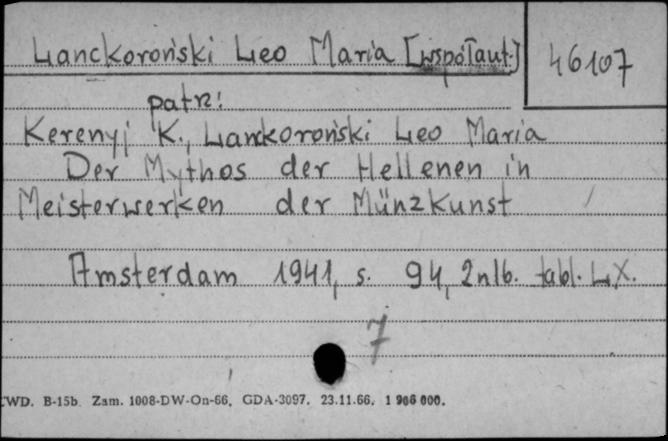 Lanckoroński Leo Maria [współaut.] 46107
patrz:
Kerenyj K., Lanckoroński Leo Maria
Der Mythos der Hellenen in
Meisterwerken der Münzkunst
Amsterdam 1941, s. 94, 2nlb. tabl. LX.
7
CWD. B-15b. Zam. 1008-DW-On-66, GDA-3097. 23.11.66. 1 906 000.